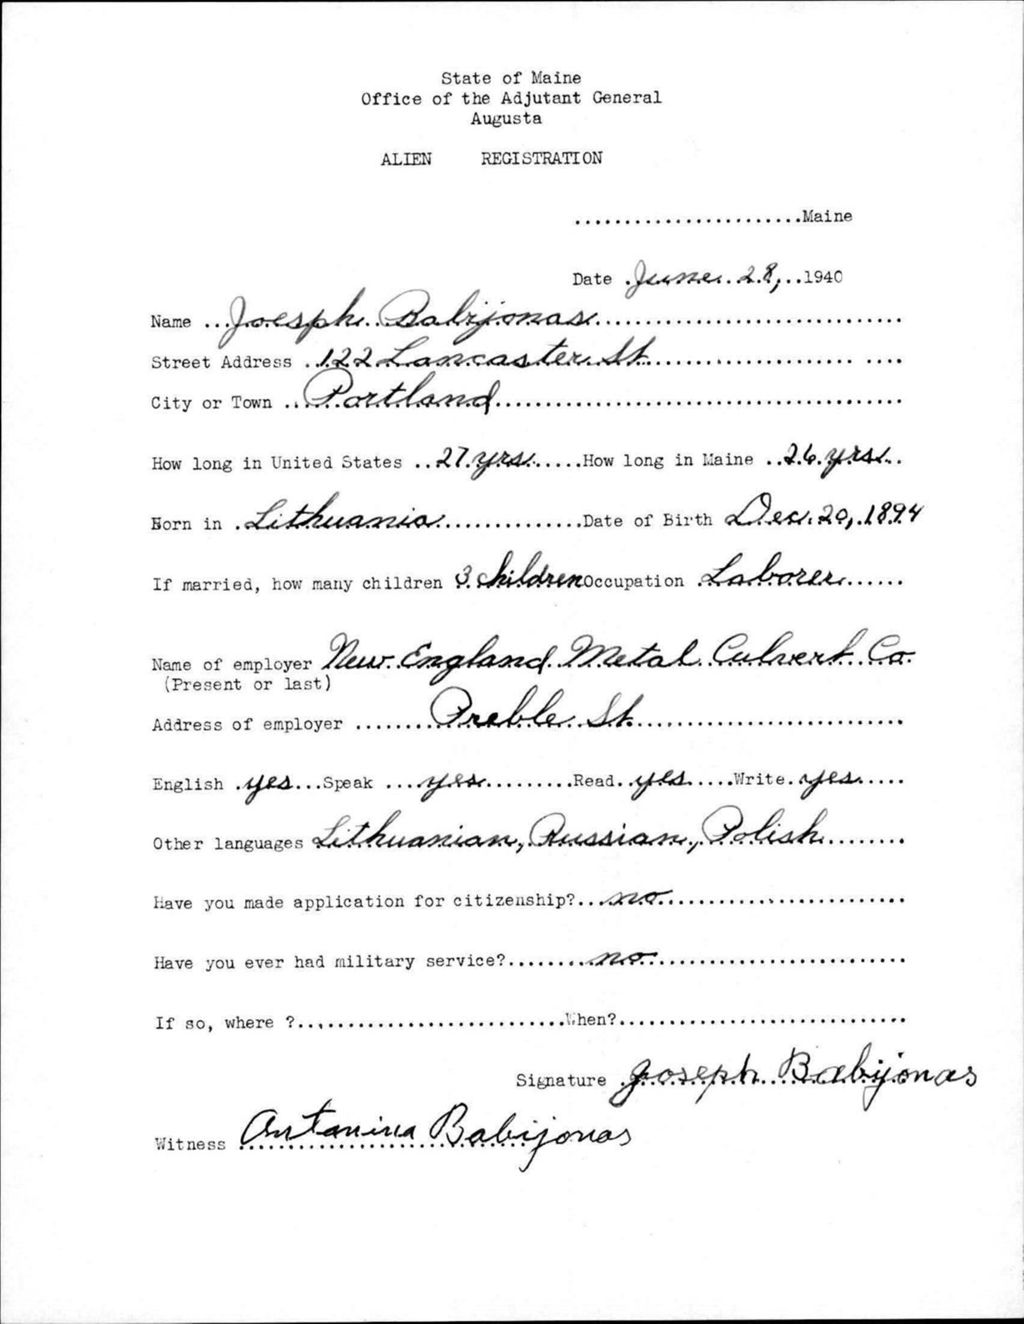 State of Maine
Office of the Adjutant General
Augusta
ALIEN REGISTRATION
.......................Maine
Date .June. 28,..1940
Name ...Joesph. Babijonas...............................
Street Address ..122 Lancaster St.......................... ....
City or Town .....Portland.........................................
How long in United States ..27.yrs......How long in Maine ..26.yrs...
Born in .Lithuania..............Date of Birth Dec. 20,.1894
If married, how many children 3 children Occupation .Laborer......
Name of employer New England Metal Culvert Co.
(Present or last)
Address of employer ........Preble St...........................
English .yes...Speak ....yes.........Read..yes.....Write.yes.....
Other languages Lithuanian, Russian, Polish........
Have you made application for citizenship?...no.........................
Have you ever had military service?........no..........................
If so, where ?...........................When?.............................
Signature .Joseph Babijonas
Witness Antanina Babijonas